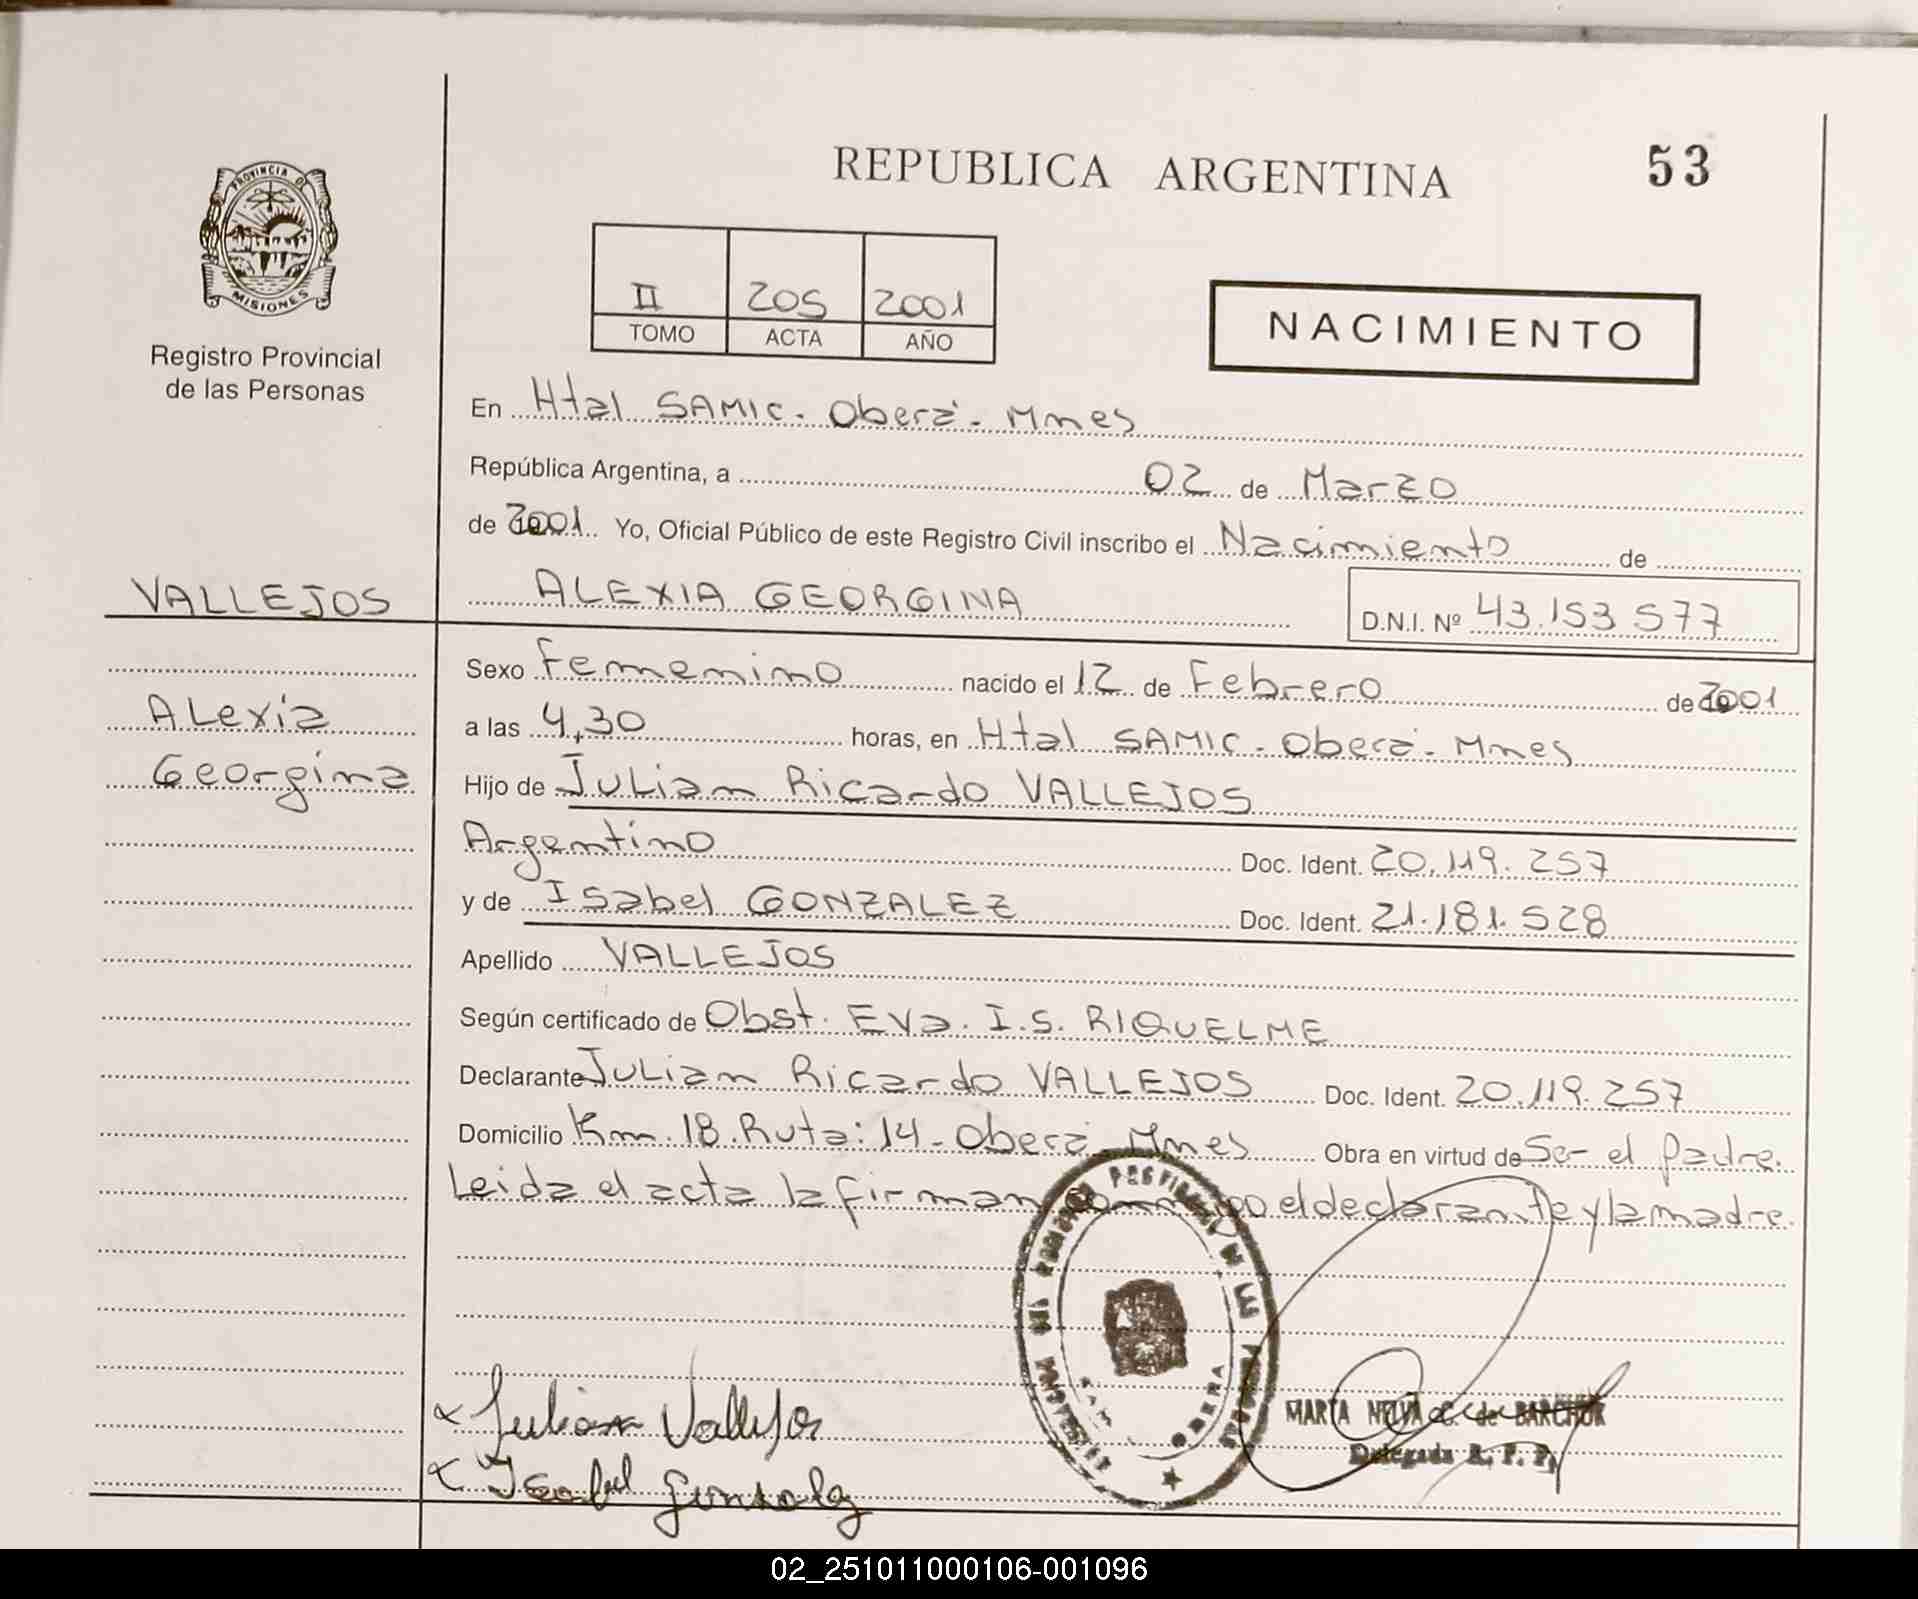 REPUBLICA ARGENTINA
53
PROVINCIA DE
MISIONES
Registro Provincial
de las Personas
II 205 2001
TOMO ACTA AÑO
NACIMIENTO
En Htal SAMIC - Oberá - Mnes
República Argentina, a 02 de Marzo
de 2001 Yo, Oficial Público de este Registro Civil inscribo el Nacimiento de
VALLEJOS
ALEXIA GEORGINA
D.N.I. Nº 43.153 577
Alexia
Georgina
Sexo Femenino nacido el 12 de Febrero de 2001
a las 4,30 horas, en Htal SAMIC - Oberá - Mnes
Hijo de Julian Ricardo VALLEJOS
Argentino Doc. Ident. 20.119.257
y de Isabel GONZALEZ Doc. Ident. 21.181.528
Apellido VALLEJOS
Según certificado de Obst. Eva. I.S. RIQUELME
Declarante Julian Ricardo VALLEJOS Doc. Ident. 20.119.257
Domicilio Km.18.Ruta:14-Oberá-Mnes Obra en virtud de Ser el padre.
Leida el acta la firman el declarante y la madre.
OBERA
x Julian Vallejos
x Isabel Gonzalez
MARTA NELVA C. de BARCHUK
Delegada R. P. P.
02_251011000106-001096